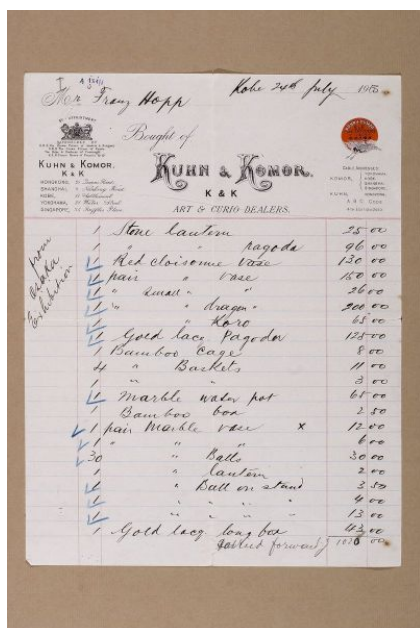 Mr. Franz Hopp
Kobe 24th July
Bought of
KUHN & KOMOR.
K & K
ART & CURIO DEALERS.
BY APPOINTMENT
KUHN & KOMOR.
K & K
HONGKONG,
SHANGHAI,
KOBE,
YOKOHAMA,
SINGAPORE,
from
Osaka
Exhibition
1 Stone Lantern 25 00
1 " " pagoda 96 00
1 Red cloisonne vase 130 00
1 pair " vase 150 00
1 " small " " 26 00
1 " " dragon " 200 00
1 " " Koro 65 00
1 Gold lacq Pagoda 125 00
1 Bamboo Cage 8 00
4 " Baskets 11 00
1 " " 3 00
1 Marble water pot 65 00
1 Bamboo box 2 50
1 pair Marble vase x 12 00
1 " " " 6 00
30 " Balls 30 00
1 " lantern 2 00
1 " Ball on stand 3 50
1 " " " " 4 00
1 " " " " 13 00
1 Gold lacq long box 43 00
carried forward